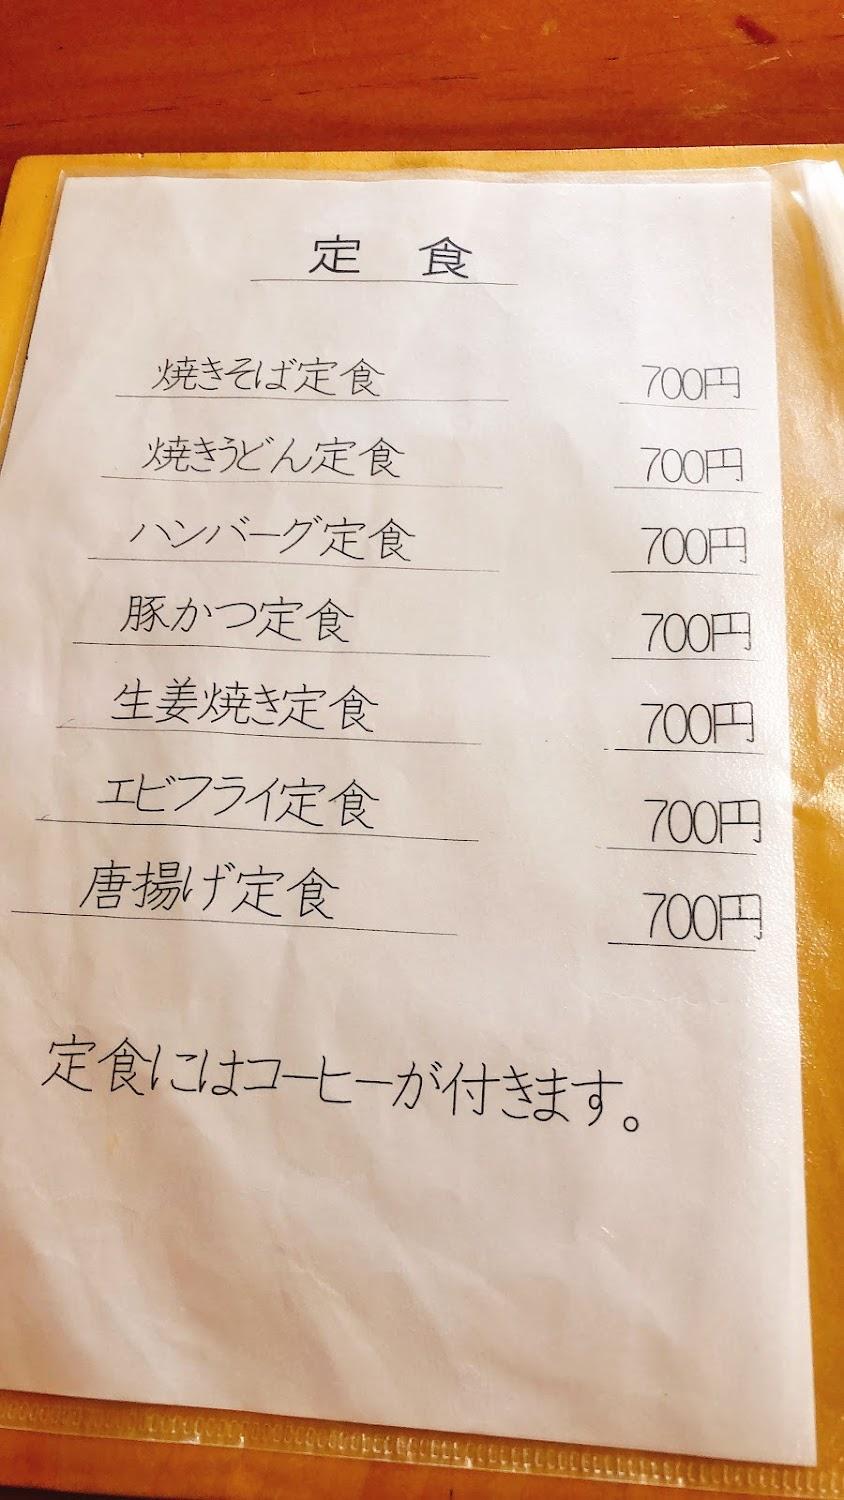 定 食
焼きそば定食 700円
焼きうどん定食 700円
ハンバーグ定食 700円
豚かつ定食 700円
生姜焼き定食 700円
エビフライ定食 700円
唐揚げ定食 700円
定食にはコーヒーが付きます。